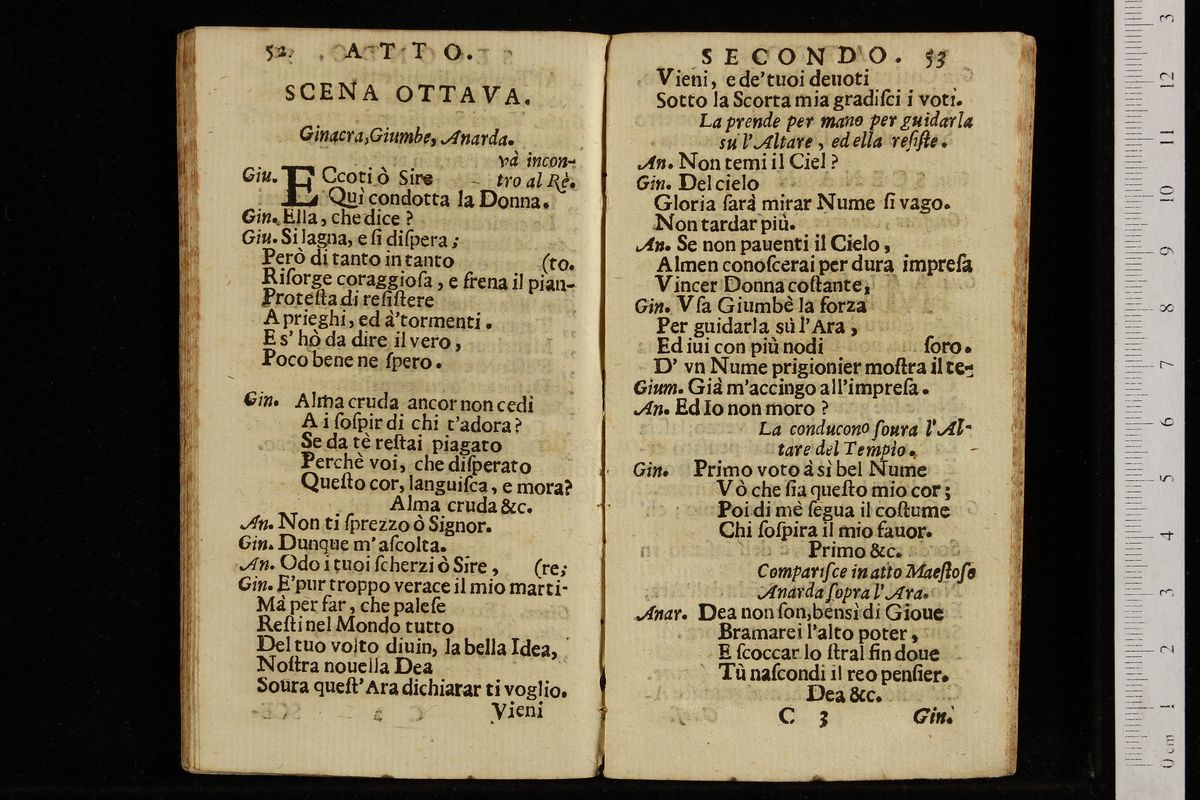 52. ATTO.
SCENA OTTAVA.
Ginacra, Giumbe, Anarda.
và incon-
Giu. ECcoti ò Sire tro al Rè.
Quì condotta la Donna.
Gin. Ella, che dice ?
Giu. Si lagna, e ſi diſpera ;
Però di tanto in tanto (to.
Riſorge coraggioſa, e frena il pian-
Proteſta di reſiſtere
A prieghi, ed à'tormenti .
E s' hò da dire il vero ,
Poco bene ne ſpero .
Gin. Alma cruda ancor non cedi
A i ſoſpir di chi t'adora ?
Se da tè reſtai piagato
Perchè voi, che diſperato
Queſto cor, languiſca, e mora?
Alma cruda &c.
An. Non ti ſprezzo ò Signor.
Gin. Dunque m' aſcolta.
An. Odo i tuoi ſcherzi ò Sire , (re;
Gin. E'pur troppo verace il mio marti-
Mà per far, che paleſe
Reſti nel Mondo tutto
Del tuo volto diuin, la bella Idea,
Noſtra nouella Dea
Soura queſt' Ara dichiarar ti voglio.
Vieni
SECONDO. 53
Vieni, e de' tuoi deuoti
Sotto la Scorta mia gradiſci i voti.
La prende per mano per guidarla
sù l'Altare , ed ella reſiſte .
An. Non temi il Ciel ?
Gin. Del cielo
Gloria ſarà mirar Nume ſi vago.
Non tardar più.
An. Se non pauenti il Cielo ,
Almen conoſcerai per dura impreſa
Vincer Donna coſtante,
Gin. Vſa Giumbè la forza
Per guidarla sù l'Ara ,
Ed iui con più nodi ſoro.
D' vn Nume prigionier moſtra il te-
Gium. Già m'accingo all'impreſa .
An. Ed Io non moro ?
La conducono ſoura l'Al-
tare del Tempio.
Gin. Primo voto à sì bel Nume
Vò che ſia queſto mio cor ;
Poi di mè ſegua il coſtume
Chi ſoſpira il mio fauor.
Primo &c.
Compariſce in atto Maeſtoſo
Anarda ſopra l'Ara.
Anar. Dea non ſon, bensì di Gioue
Bramarei l'alto poter ,
E ſcoccar lo ſtral fin doue
Tù naſcondi il reo penſier.
Dea &c.
C 3 Gin.
0 cm 1 2 3 4 5 6 7 8 9 10 11 12 3